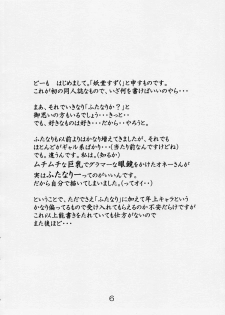 どーも はじめまして。「妖堂すずく」と申すものです。
これが初の同人誌なもので、いざ何を書けばいいのやら
(汗)・・・
まあ、それでいきなり「ふたなりか？」と
御思いの方もいるでしょう・・・きっと・・
でも、好きなものは好き・・・だから・・やろう。
ふたなりも以前よりはかなり増えてきましたが、それでも
ほとんどがギャル系ばかり・・・(当たり前なんですけどね)
でも、違うんです。私は。(知るか)
ムチムチな巨乳でグラマーな眼鏡をかけたオネーさんが
実はふたなりーってのがいいんです。
だから自分で描いてしまいました。(っておい)・・
ということで、ただでさえ「ふたなり」に加えて年上キャラという
かなり偏ってるもので受け入れてもらえるのか不安だらけですが
これ以上能書きをたれていても仕方がないので
また後ほど・・・
6